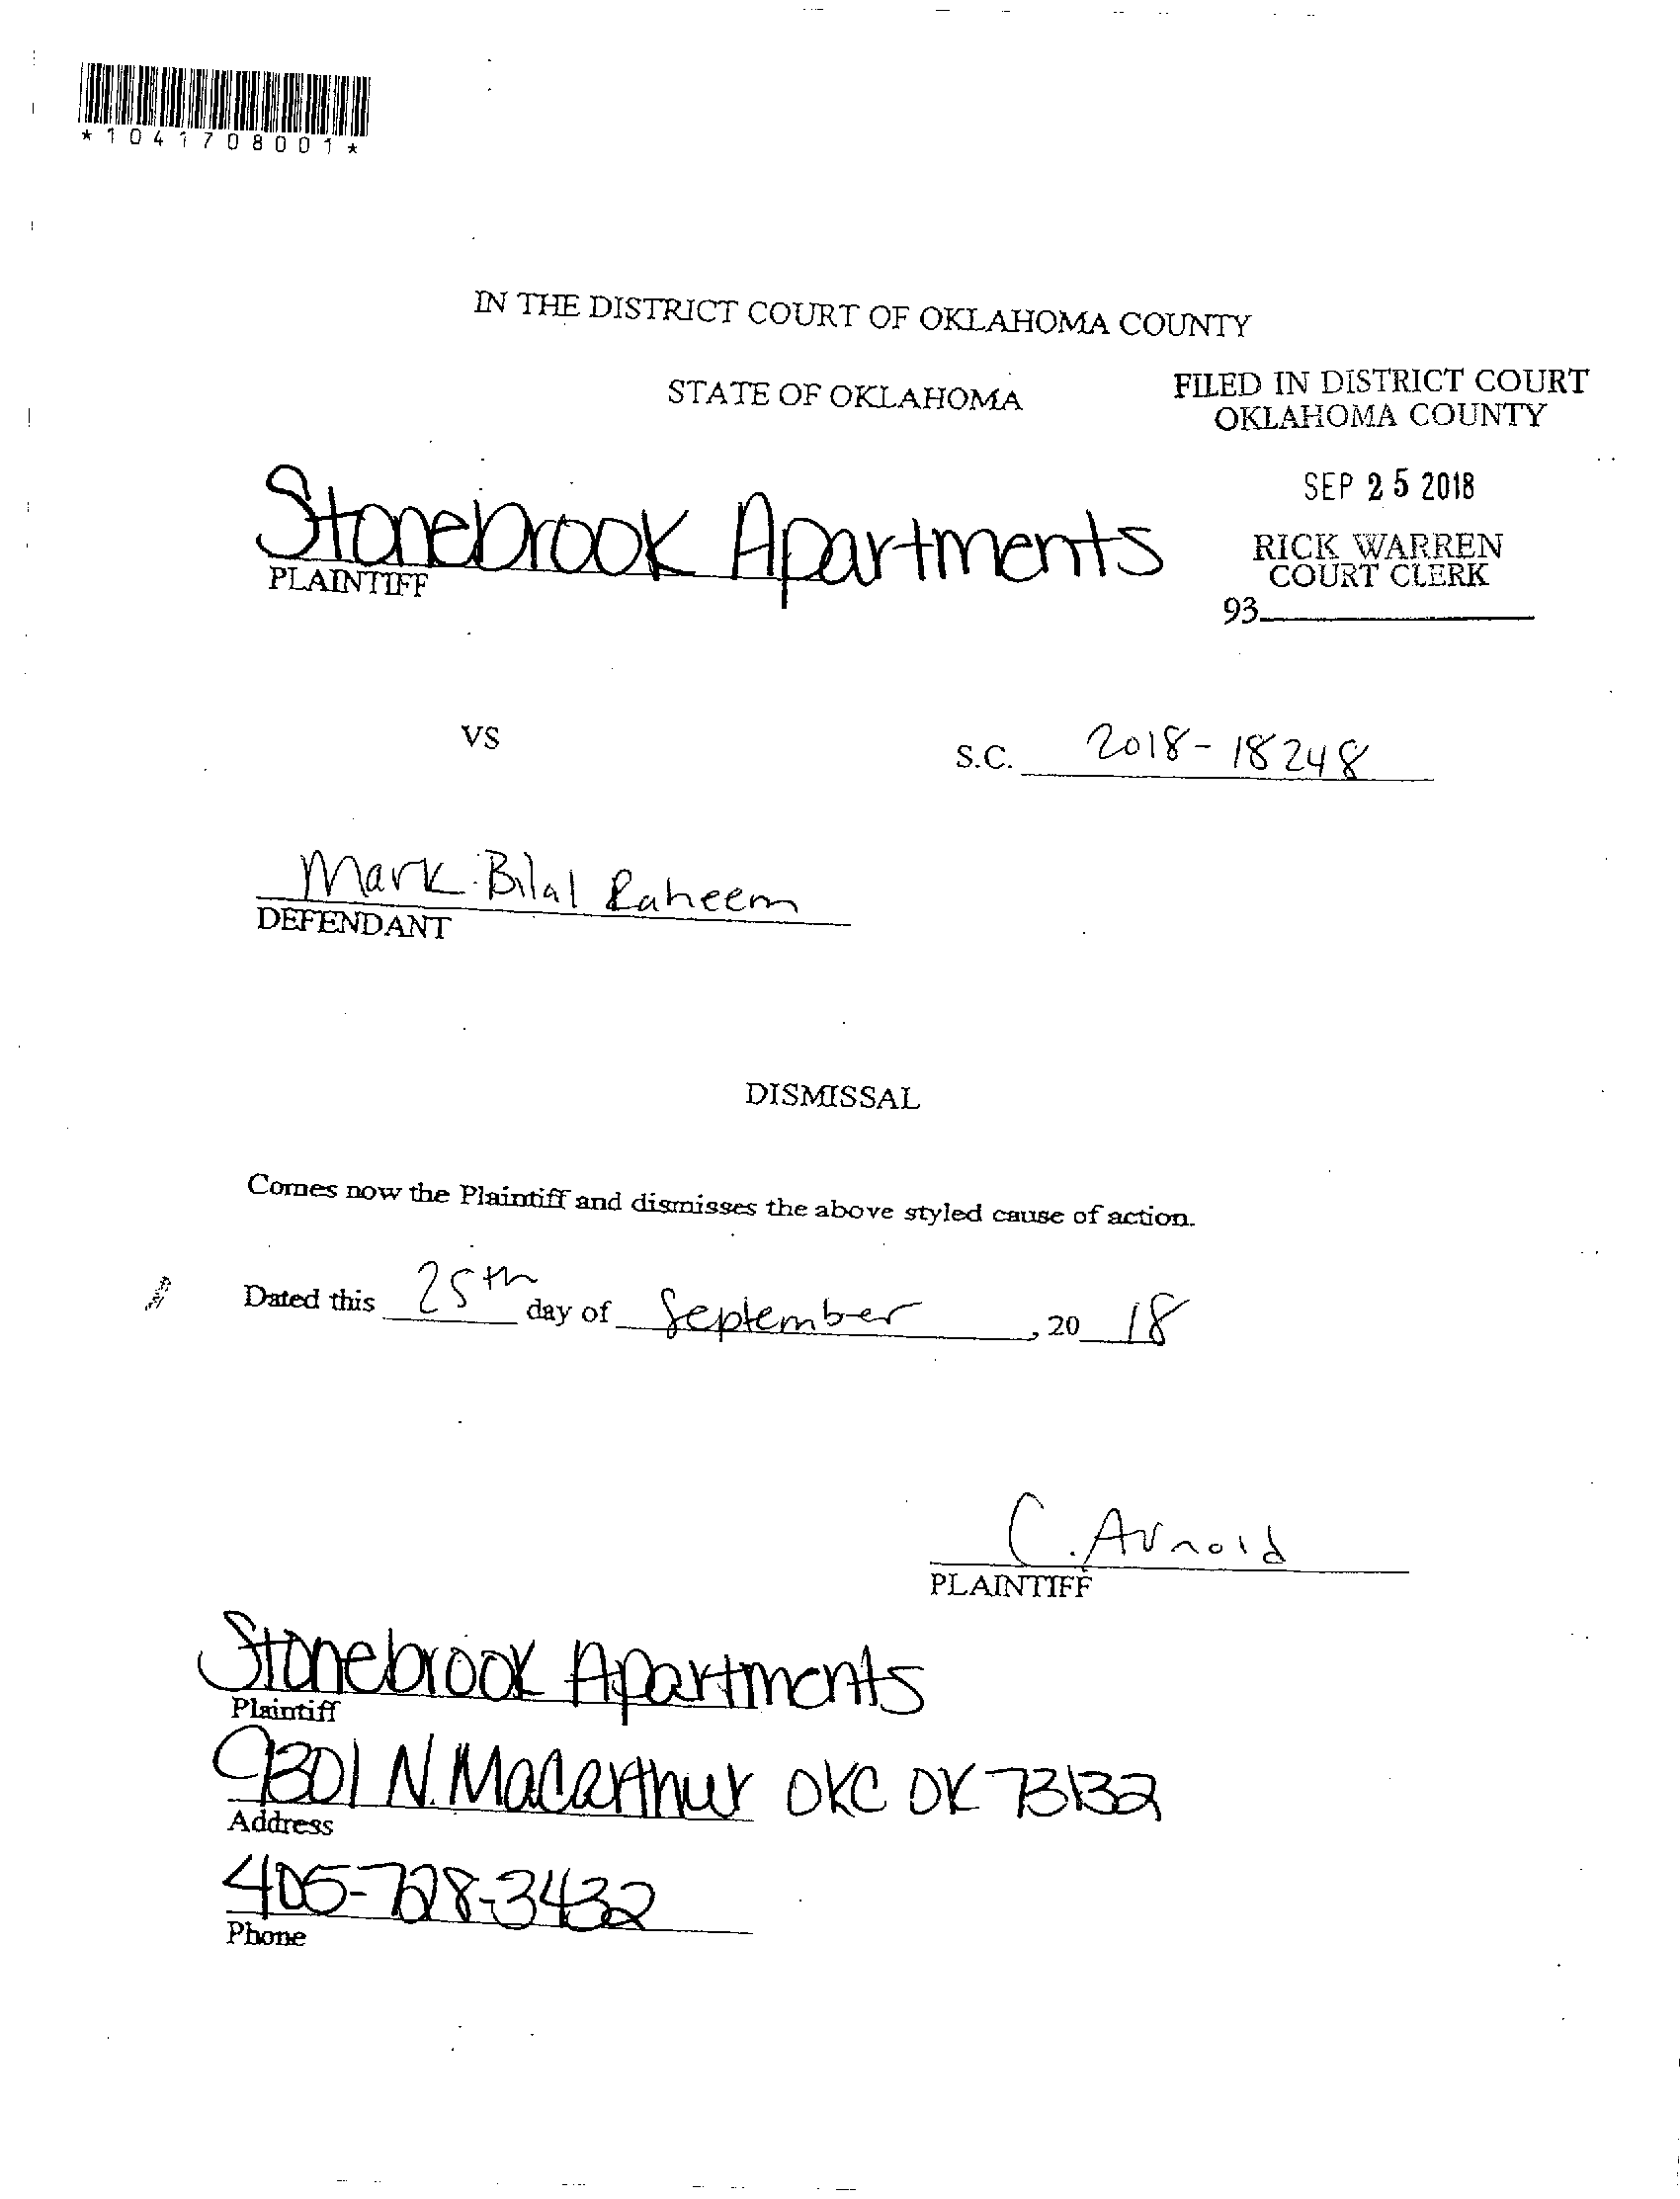 *1041708001*
IN THE DISTRICT COURT OF OKLAHOMA COUNTY
STATE OF OKLAHOMA
FILED IN DISTRICT COURT
OKLAHOMA COUNTY
SEP 25 2018
RICK WARREN
COURT CLERK
93
Stonebrook Apartments
PLAINTIFF
VS
S.C. 2018-18248
Mark Bilal Raheem
DEFENDANT
DISMISSAL
Comes now the Plaintiff and dismisses the above styled cause of action.
Dated this 25th day of September, 2018
C. Arnold
PLAINTIFF
Stonebrook Apartments
Plaintiff
9301 N. MacArthur OKC OK 73132
Address
405-728-3432
Phone